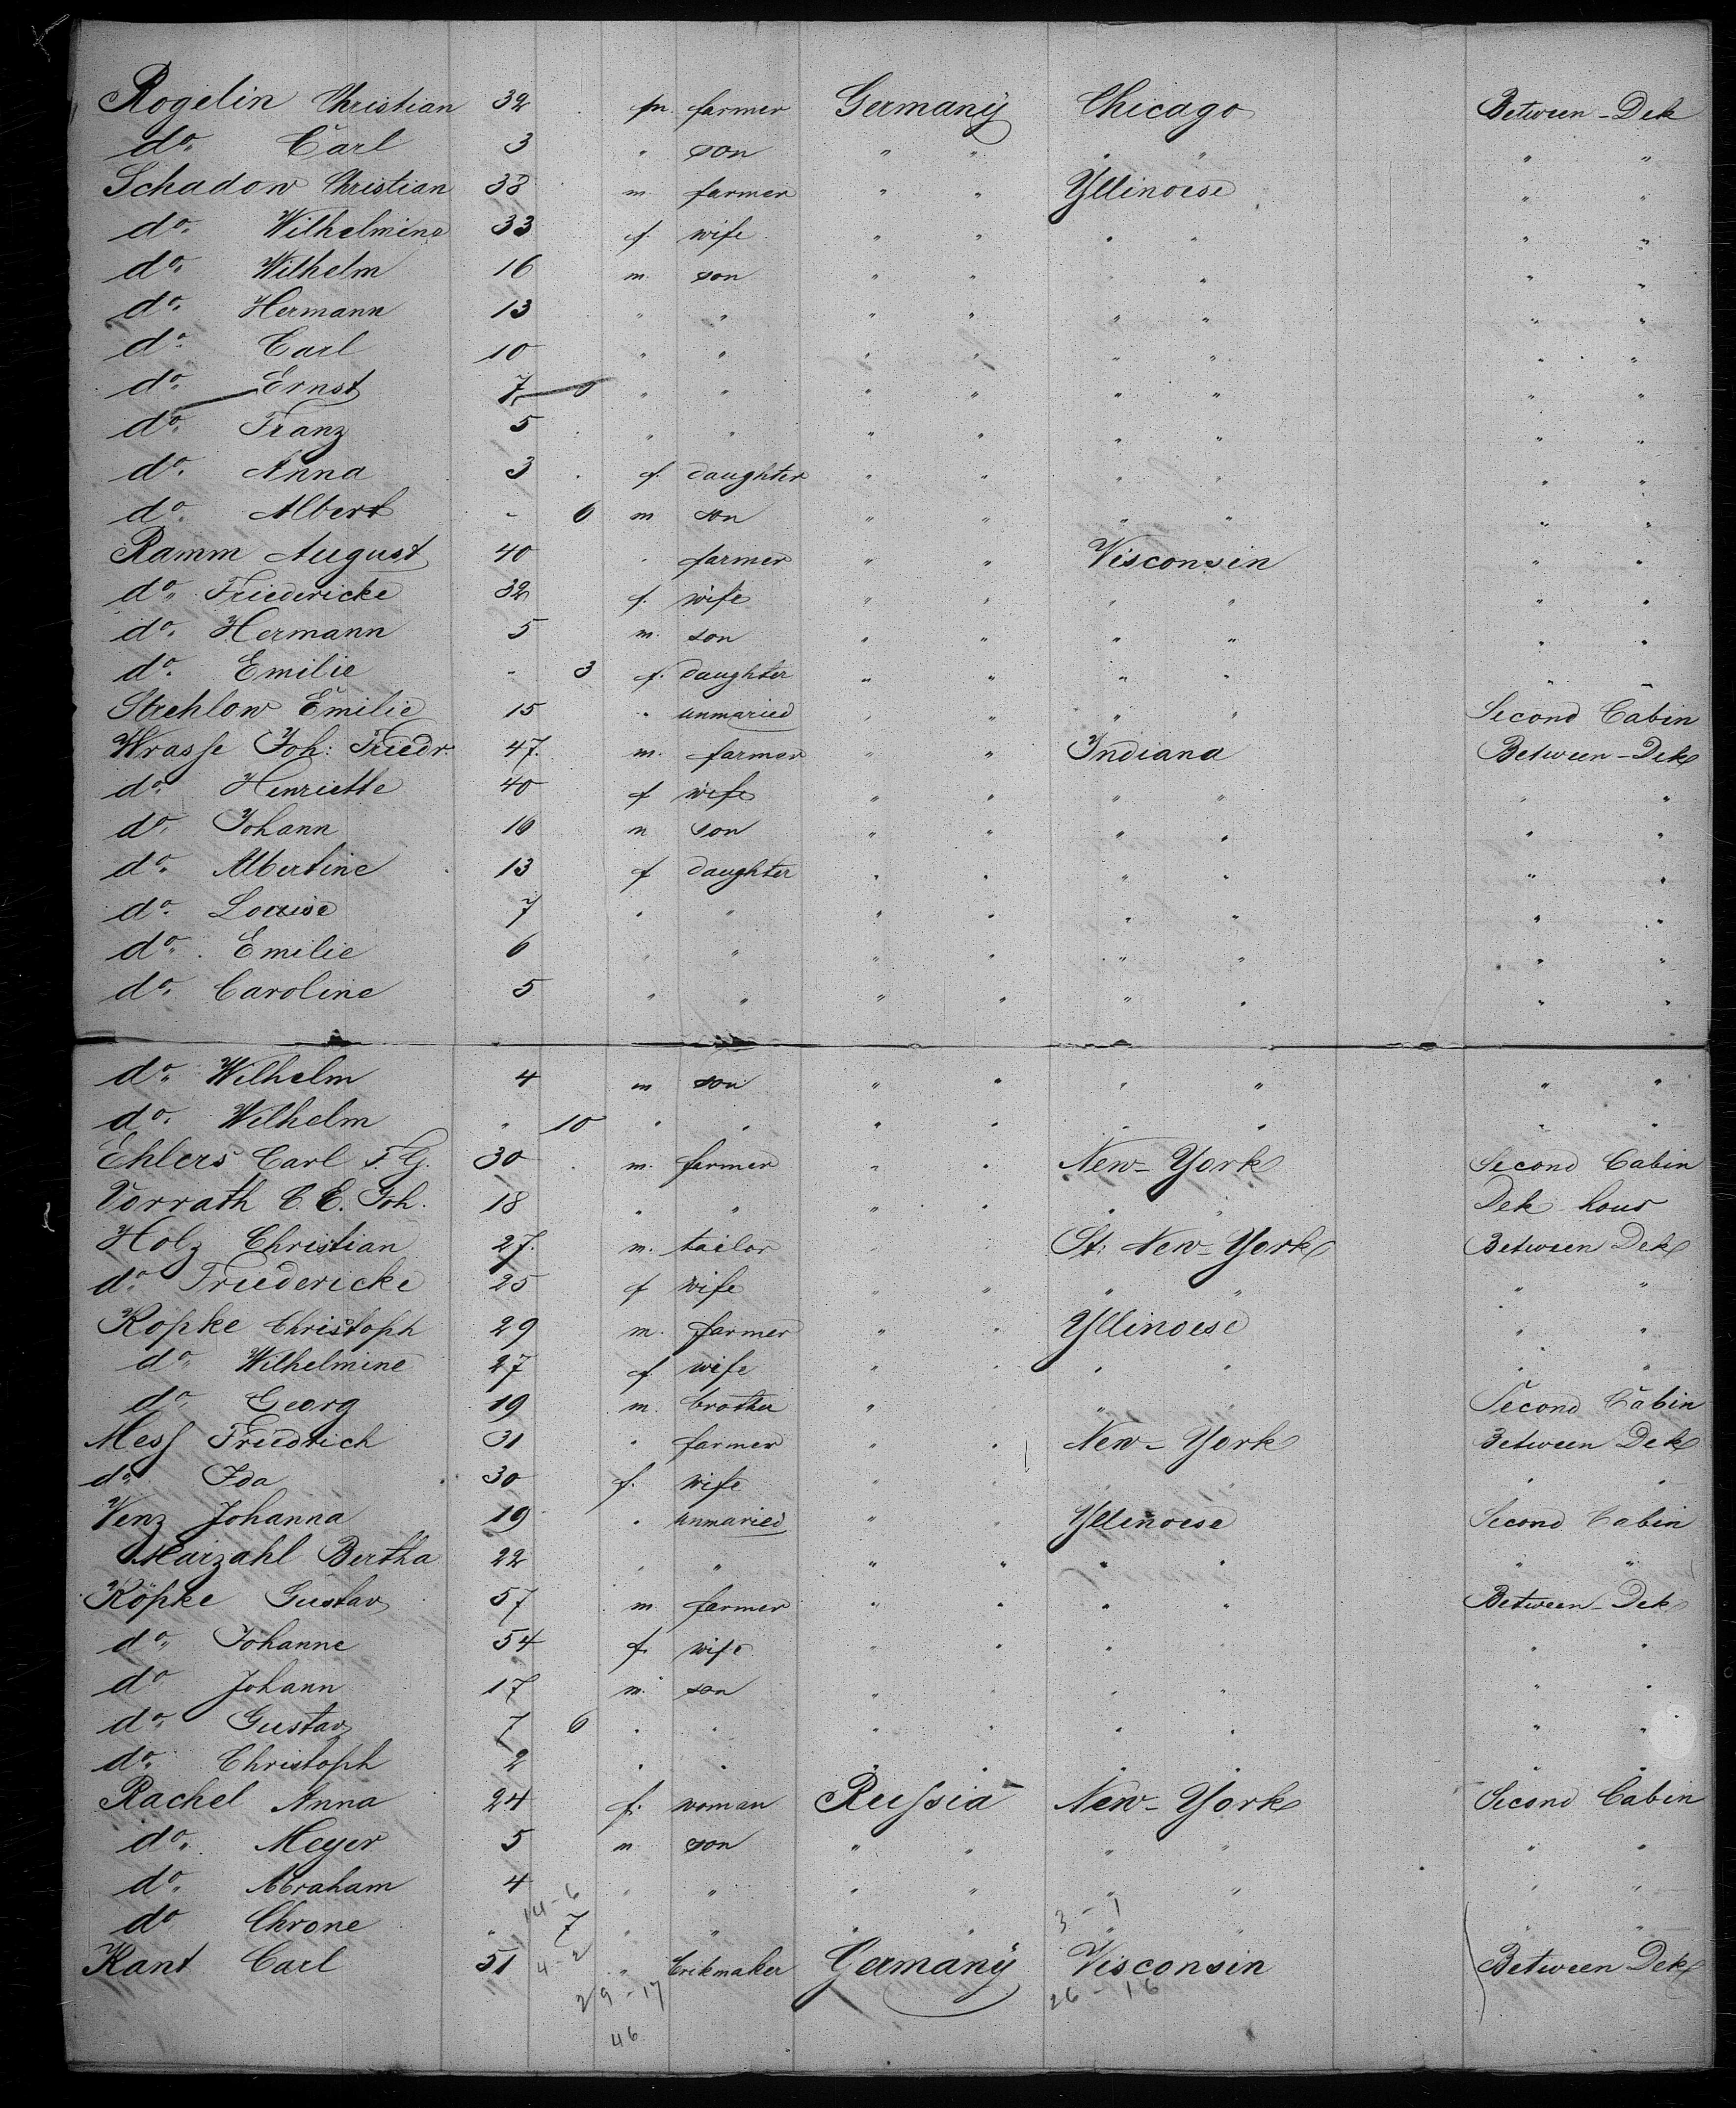 Rogelin Christian 32 m. farmer Germany Chicago Between-Dek
do. Carl 3 " son " " " " " "
Schadow Christian 38 m. farmer " " Yllinoese " "
do. Wilhelmine 33 f. wife " " " " " "
do. Wilhelm 16 m. son " " " " " "
do. Hermann 13 " " " " " " " "
do. Carl 10 " " " " " " " "
do. Ernst 7 " " " " " " " "
do. Franz 5 " " " " " " " "
do. Anna 3 f. daughter " " " " " "
do. Albert - 6 m son " " " " " "
Ramm August 40 " farmer " " Visconsin " "
do. Friedericke 32 f. wife " " " " " "
do. Hermann 5 m. son " " " " " "
do. Emilie - 3 f. daughter " " " " " "
Strehlow Emilie 15 " unmaried " " " " Second Cabin
Wrasse Joh: Friedr. 47. m. farmer " " Indiana Between-Dek
do. Henriette 40 f wife " " " " " "
do. Johann 16 m son " " " " " "
do. Albertine 13 f daughter " " " " " "
do. Louise 7 " " " " " " " "
do. Emilie 6 " " " " " " " "
do. Caroline 5 " " " " " " " "
do. Wilhelm 4 m son " " " " " "
do. Wilhelm " 10 " " " " " " " "
Ehlers Carl F. G. 30 m. farmer " " New-York Second Cabin
Vorrath C. E. Joh. 18 " " " " " " Dek hous
Holz Christian 27. m. tailor " " St: New-York Between Dek
do. Friedericke 25 f wife " " " " " "
Köpke Christoph 29 m. farmer " " Yllinoese " "
do. Wilhelmine 27 f. wife " " " " " "
do. Georg 19 m. brother " " " " Second Cabin
Mess Friedrich 31 " farmer " " New-York Between Dek
do. Ida 30 f. wife " " " " " "
Venz Johanna 19 " unmaried " " Yllinoese Second Cabin
Maizahl Bertha 22 " " " " " " " "
Köpke Gustav 57 m farmer " " " " Between-Dek
do. Johanne 54 f. wife " " " " " "
do Johann 17 m. son " " " " " "
do. Gustav 7 6 " " " " " " " "
do. Christoph 2 " " " " " " " "
Rachel Anna 24 f. woman Russia New-York Second Cabin
do. Meyer 5 m son " " " " " "
do. Abraham 4 " " " " " " " "
do Chrone " 7 " " " " " " " "
14-6 3-1
Kant Carl 51 " brikmaker Germany Visconsin Between Dek
4-2
29-17 26-16
46